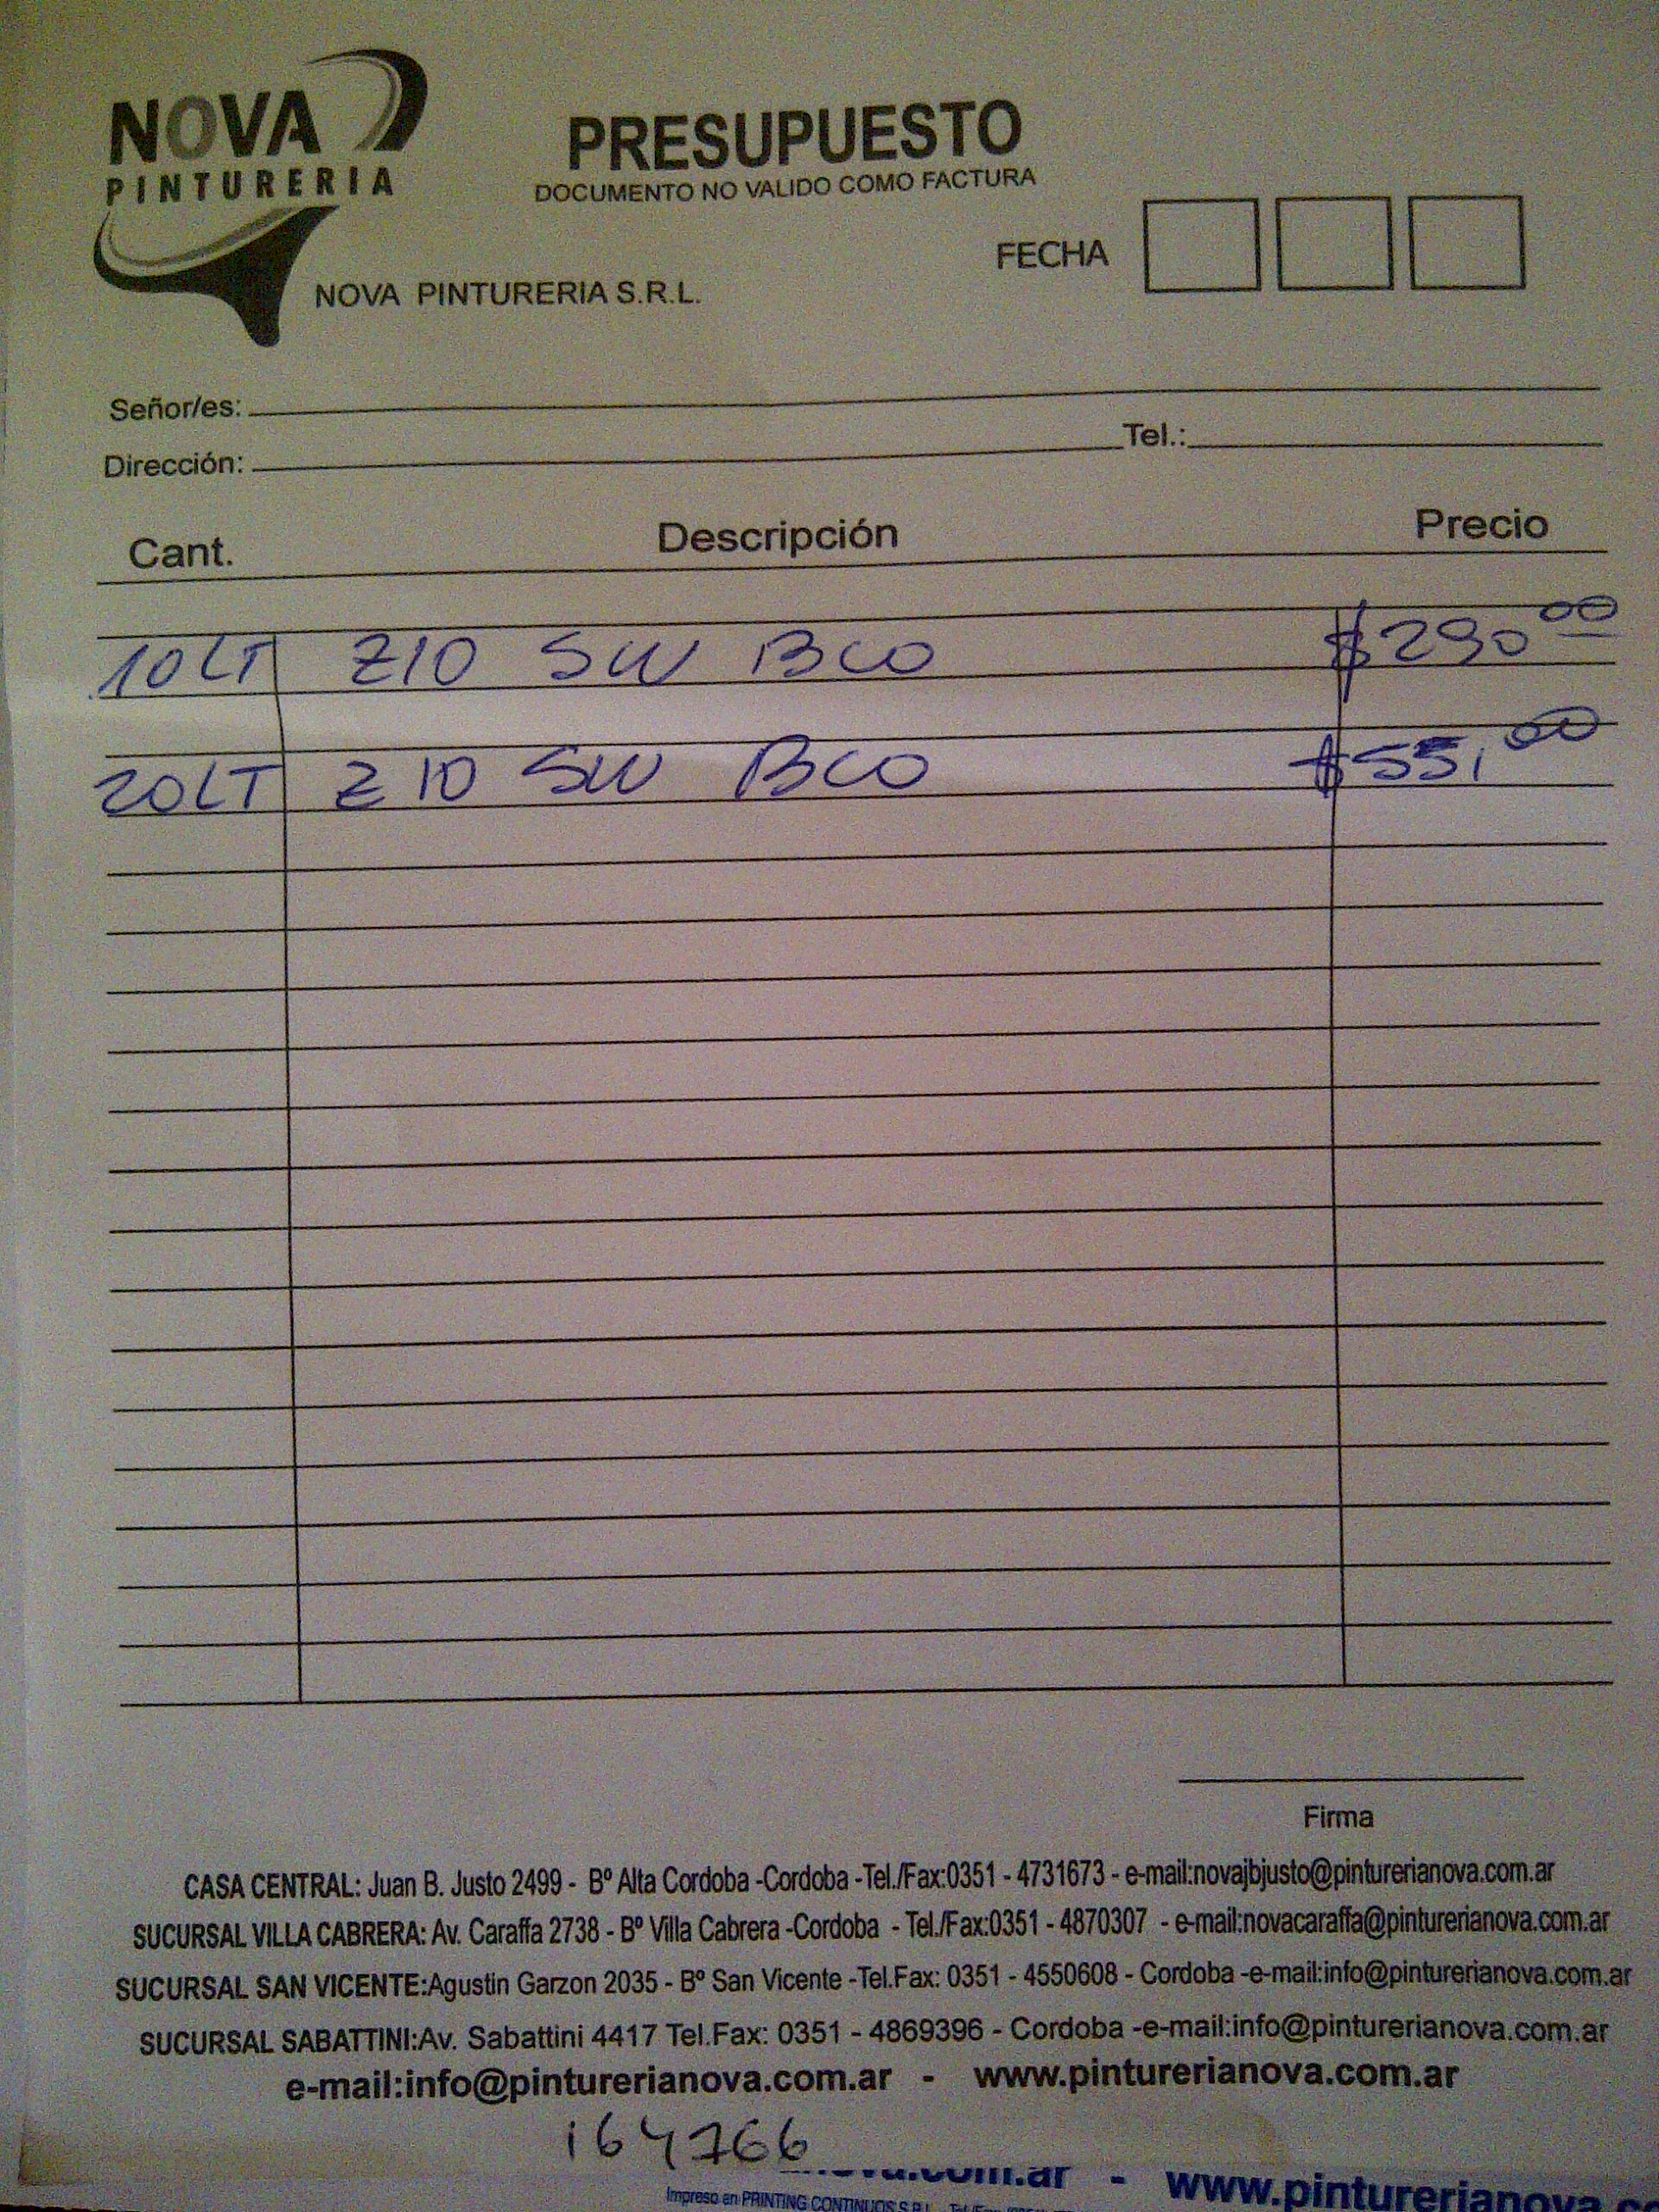 NOVA
PINTURERIA
PRESUPUESTO
DOCUMENTO NO VALIDO COMO FACTURA
FECHA
NOVA PINTURERIA S.R.L.
Señor/es:
Dirección: Tel.:
Cant. Descripción Precio
10LT Z10 SW BCO $290 00
20LT Z10 SW BCO $55,00
Firma
CASA CENTRAL: Juan B. Justo 2499 - Bº Alta Cordoba -Cordoba -Tel./Fax:0351 - 4731673 - e-mail:novajbjusto@pinturerianova.com.ar
SUCURSAL VILLA CABRERA: Av. Caraffa 2738 - Bº Villa Cabrera -Cordoba - Tel./Fax:0351 - 4870307 - e-mail:novacaraffa@pinturerianova.com.ar
SUCURSAL SAN VICENTE:Agustin Garzon 2035 - Bº San Vicente -Tel.Fax: 0351 - 4550608 - Cordoba -e-mail:info@pinturerianova.com.ar
SUCURSAL SABATTINI:Av. Sabattini 4417 Tel.Fax: 0351 - 4869396 - Cordoba -e-mail:info@pinturerianova.com.ar
e-mail:info@pinturerianova.com.ar - www.pinturerianova.com.ar
164766
.ar - www.pinturerianova.co
Impreso en PRINTING CONTINUOS S.R.L.